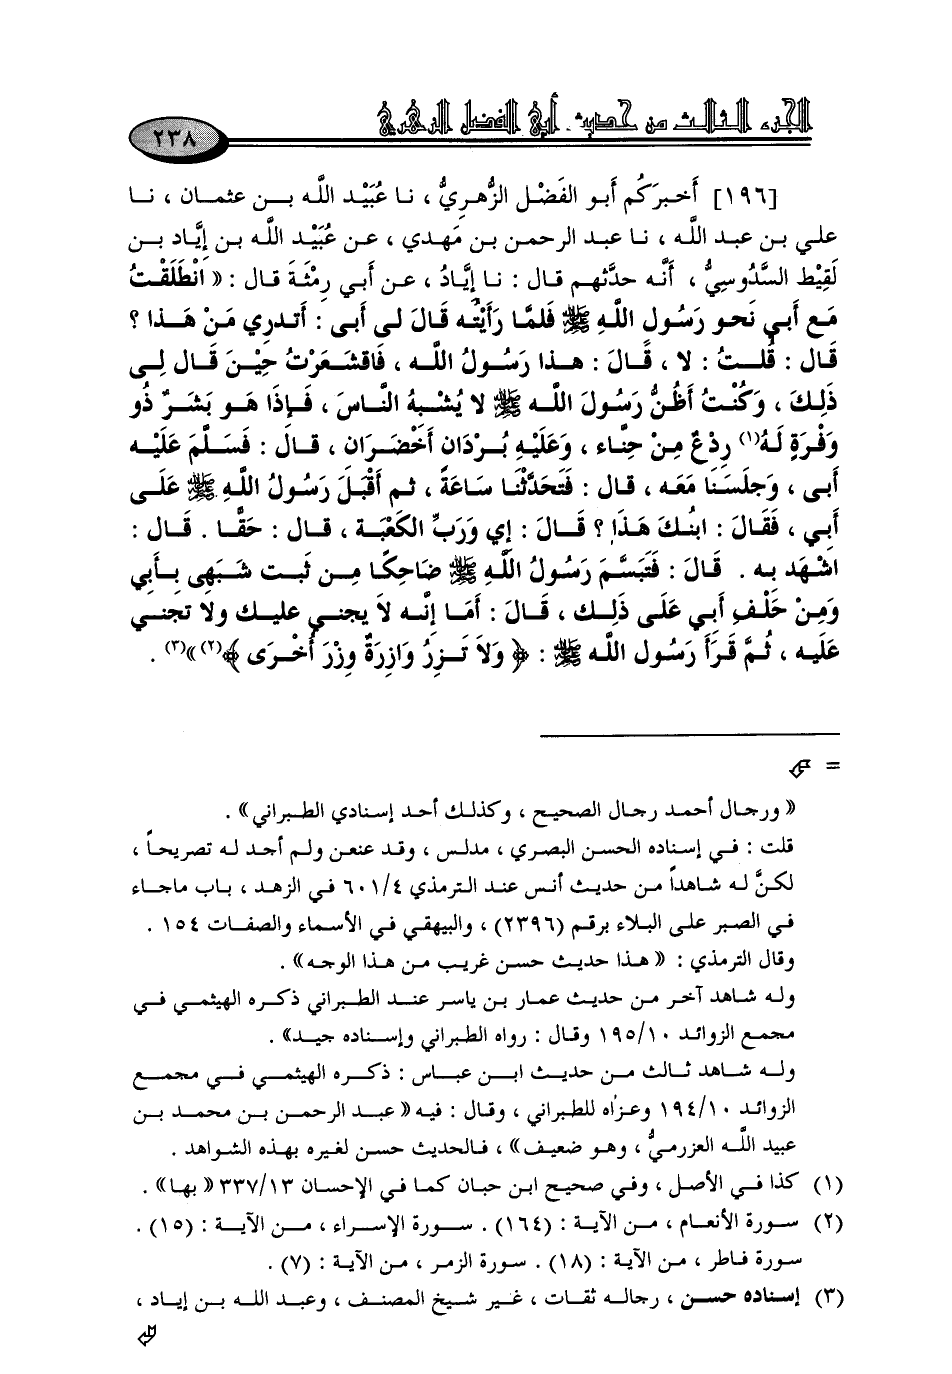 الجزء الثالث من حديث أبي الفضل الزهري
٢٣٨
[١٩٦] أَخبرَكُم أبو الفَضْل الزُّهرِيُّ ، نا عُبَيْد اللَّه بن عثمان ، نا
علي بن عبد اللَّه ، نا عبد الرحمن بن مَهدي ، عن عُبَيْد اللَّه بن إيَّاد بن
لَقِيْط السَّدُوسِيُّ ، أنَّه حدَّثهم قال : نا إيَّادُ ، عن أبي رِمْثَةَ قال : « انْطَلَقْتُ
مَع أَبي نَحو رَسُولِ اللَّهِ ﷺ فَلمَّا رَأَيْتُه قَالَ لي أَبى : أَتدرِي مَنْ هَذا ؟
قَال : قُلتُ : لا ، قَالَ : هذا رَسُولُ اللَّه ، فَاقْشعَرْتُ حِيْنَ قَال لِي
ذَلِكَ ، وَكُنْتُ أَظُنُّ رَسُولَ اللَّه ﷺ لا يُشْبهُ النَّاسَ ، فَإذَا هو بَشَرٌ ذُو
وَفْرَةٍ لَهُ(١) رِدْعٌ مِنْ حِنَّاء ، وَعَلَيْهِ بُرْدَان أَخْضَرَان ، قال : فَسَلَّمَ عَلَيْه
أَبى ، وَجلَسنَا مَعه ، قال : فَتَحَدَّثْنَا سَاعَةً ، ثم أَقْبَلَ رَسُولُ اللَّهِ ﷺ عَلَى
أَبِي ، فَقَالَ : ابنُكَ هَذَا ؟ قَالَ : إي وَرَبِّ الكَعْبَة ، قال : حَقًّا . قَال :
اشْهَد به . قَالَ : فَتَبسَّمَ رَسُولُ اللَّهِ ﷺ ضَاحِكًا مِن ثَبت شَبَهِى بأَبي
وَمِنْ حَلْفِ أَبي عَلَى ذَلِكَ ، قَالَ : أَمَا إنَّه لاَ يجنِي عليك ولا تجني
عَلَيه ، ثُمَّ قَرَأَ رَسُول اللَّه ﷺ : ﴿ وَلاَ تَزِرُ وَازِرَةٌ وِزْرَ أُخْرَى ﴾(٢)»(٣) .
=
« ورجال أحمد رجال الصحيح ، وكذلك أحد إسنادي الطبراني» .
قلت : في إسناده الحسن البصري ، مدلس ، وقد عنعن ولم أجد له تصريحاً ،
لكنَّ له شاهداً من حديث أنس عند الترمذي ٦٠١/٤ في الزهد ، باب ماجاء
في الصبر على البلاء برقم (٢٣٩٦) ، والبيهقي في الأسماء والصفات ١٥٤ .
وقال الترمذي : « هذا حديث حسن غريب من هذا الوجه» .
وله شاهد آخر من حديث عمار بن ياسر عند الطبراني ذكره الهيثمي في
مجمع الزوائد ١٩٥/١٠ وقال : رواه الطبراني وإسناده جيد» .
وله شاهد ثالث من حديث ابن عباس : ذكره الهيثمي في مجمع
الزوائد ١٩٤/١٠ وعزاه للطبراني ، وقال : فيه « عبد الرحمن بن محمد بن
عبيد اللَّه العزرميُّ ، وهو ضعيف» ، فالحديث حسن لغيره بهذه الشواهد .
(١) كذا في الأصل ، وفي صحيح ابن حبان كما في الإحسان ٣٣٧/١٣ « بها» .
(٢) سورة الأنعام ، من الآية : (١٦٤) . سورة الإسراء ، من الآية : (١٥) .
سورة فاطر ، من الآية : (١٨) . سورة الزمر ، من الآية : (٧) .
(٣) إسناده حسن ، رجاله ثقات ، غير شيخ المصنف ، وعبد الله بن إياد ،